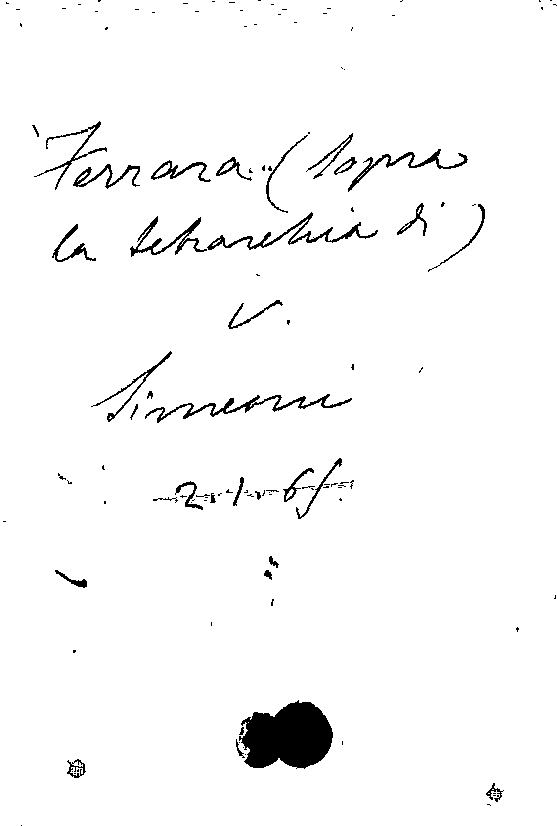 Ferrara (sopra
la tetrarchia di)
v.
Simeoni
2.1.65.